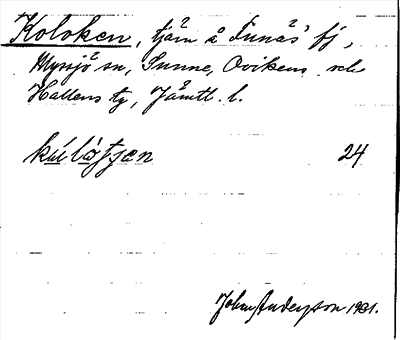 Koloken, tjärn å Funäs' fj,
Myssjö sn, Sunne, Ovikens och
Hallens tg, Jämtl. l.
kúlòtjen 24
John Anderson 1931.